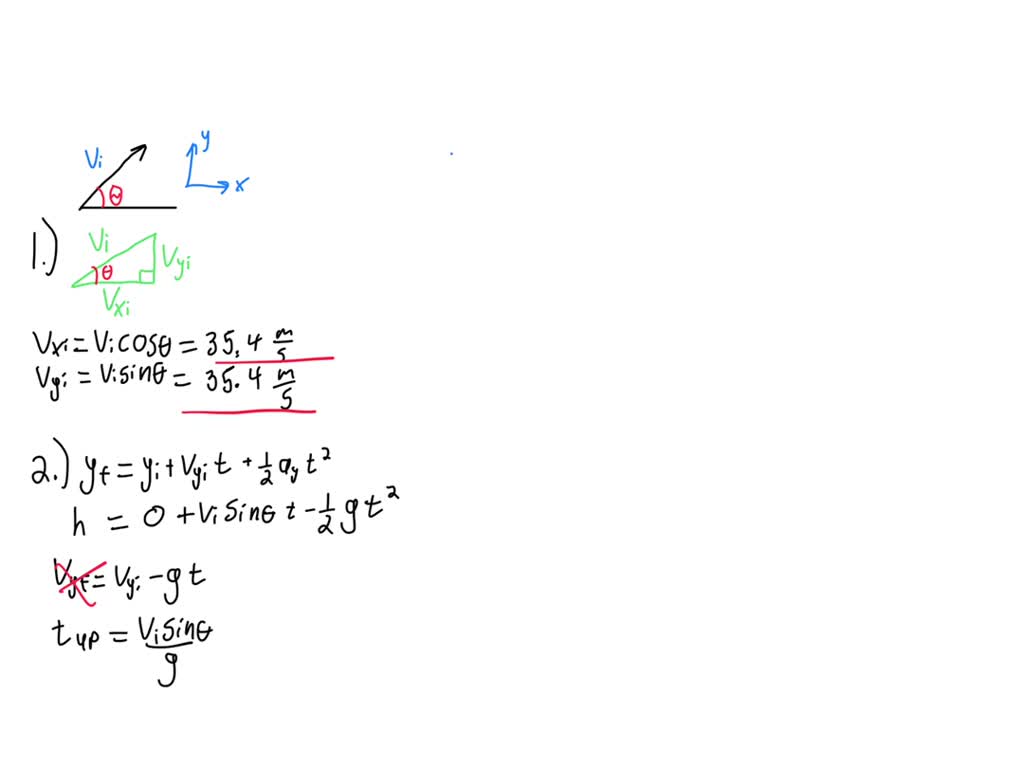 Vi
y
θ
x
1.)
Vi
θ
Vyi
Vxi
Vxi = Vi cosθ = 35.4 m/s
Vyi = Vi sinθ = 35.4 m/s
2.) yf = yi + Vyi t + 1/2 ay t²
h = 0 + Vi sinθ t - 1/2 g t²
Vyf = Vyi - g t
tup = Vi sinθ / g